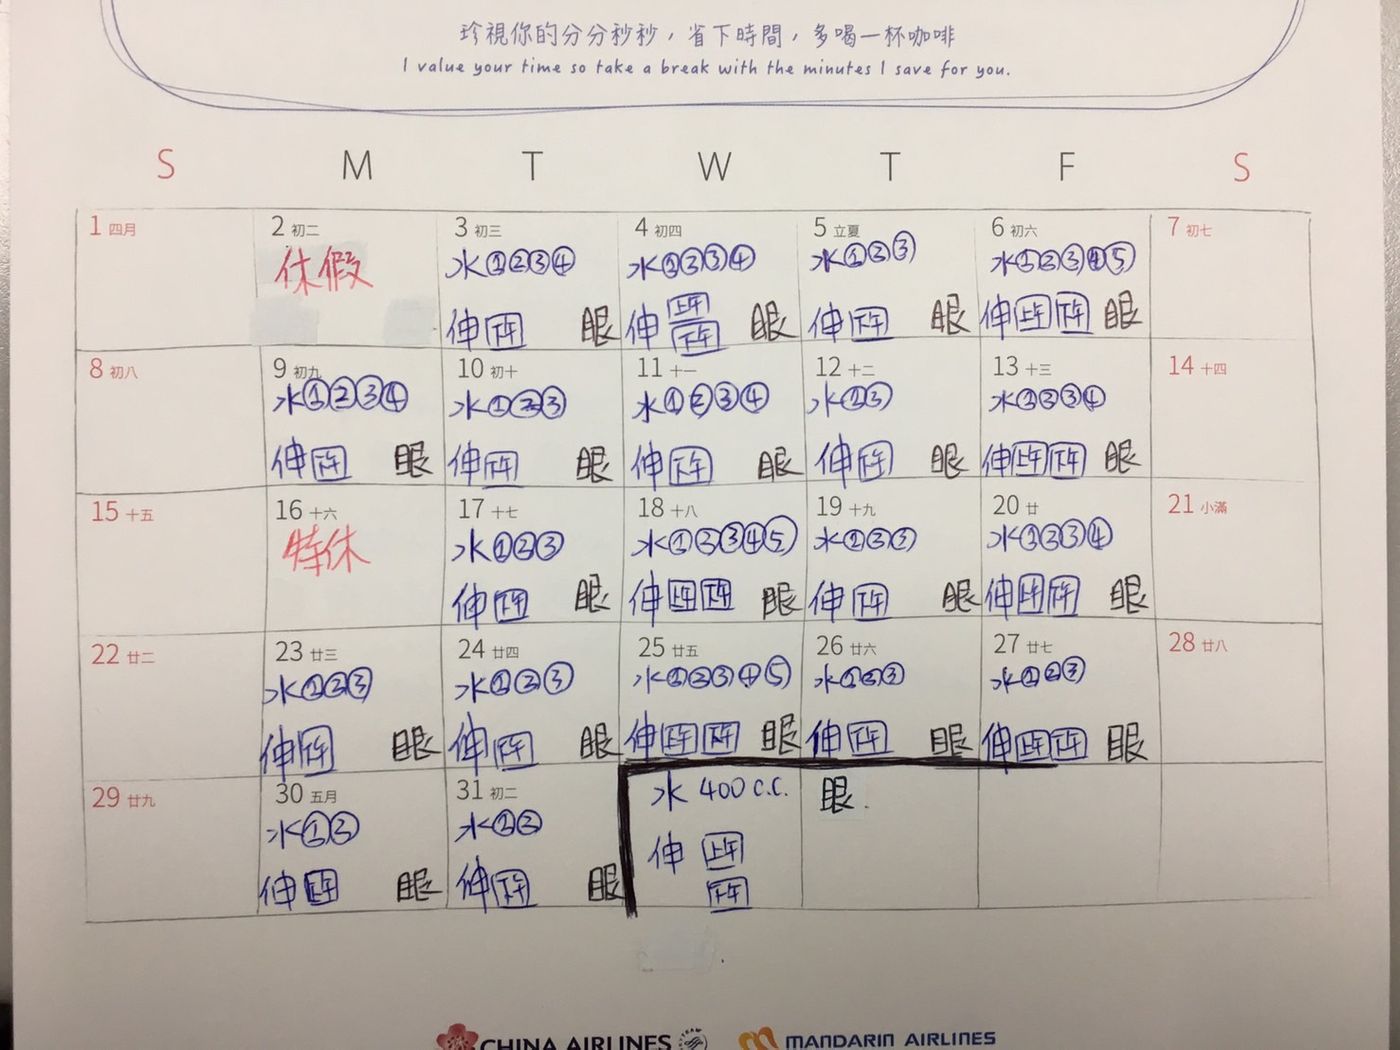 珍視你的分分秒秒，省下時間，多喝一杯咖啡
I value your time so take a break with the minutes I save for you.
S M T W T F S
1 四月 2 初二 3 初三 4 初四 5 立夏 6 初六 7 初七
休假 水①②③④ 水①②③④ 水①②③ 水①②③④⑤
上午
伸 下午 眼 伸 下午 眼 伸 下午 眼 伸 上午 下午 眼
8 初八 9 初九 10 初十 11 十一 12 十二 13 十三 14 十四
水①②③④ 水①②③ 水①②③④ 水①②③ 水①②③④
伸 下午 眼 伸 下午 眼 伸 下午 眼 伸 下午 眼 伸 上午 下午 眼
15 十五 16 十六 17 十七 18 十八 19 十九 20 廿 21 小滿
特休 水①②③ 水①②③④⑤ 水①②③ 水①②③④
伸 下午 眼 伸 上午 下午 眼 伸 下午 眼 伸 上午 下午 眼
22 廿二 23 廿三 24 廿四 25 廿五 26 廿六 27 廿七 28 廿八
水①②③ 水①②③ 水①②③④⑤ 水①②③ 水①②③
伸 下午 眼 伸 下午 眼 伸 上午 下午 眼 伸 下午 眼 伸 上午 下午 眼
29 廿九 30 五月 31 初二 水 400 c.c. 眼
水①② 水①②
伸 上午
伸 下午 眼 伸 下午 眼 下午
CHINA AIRLINES MANDARIN AIRLINES